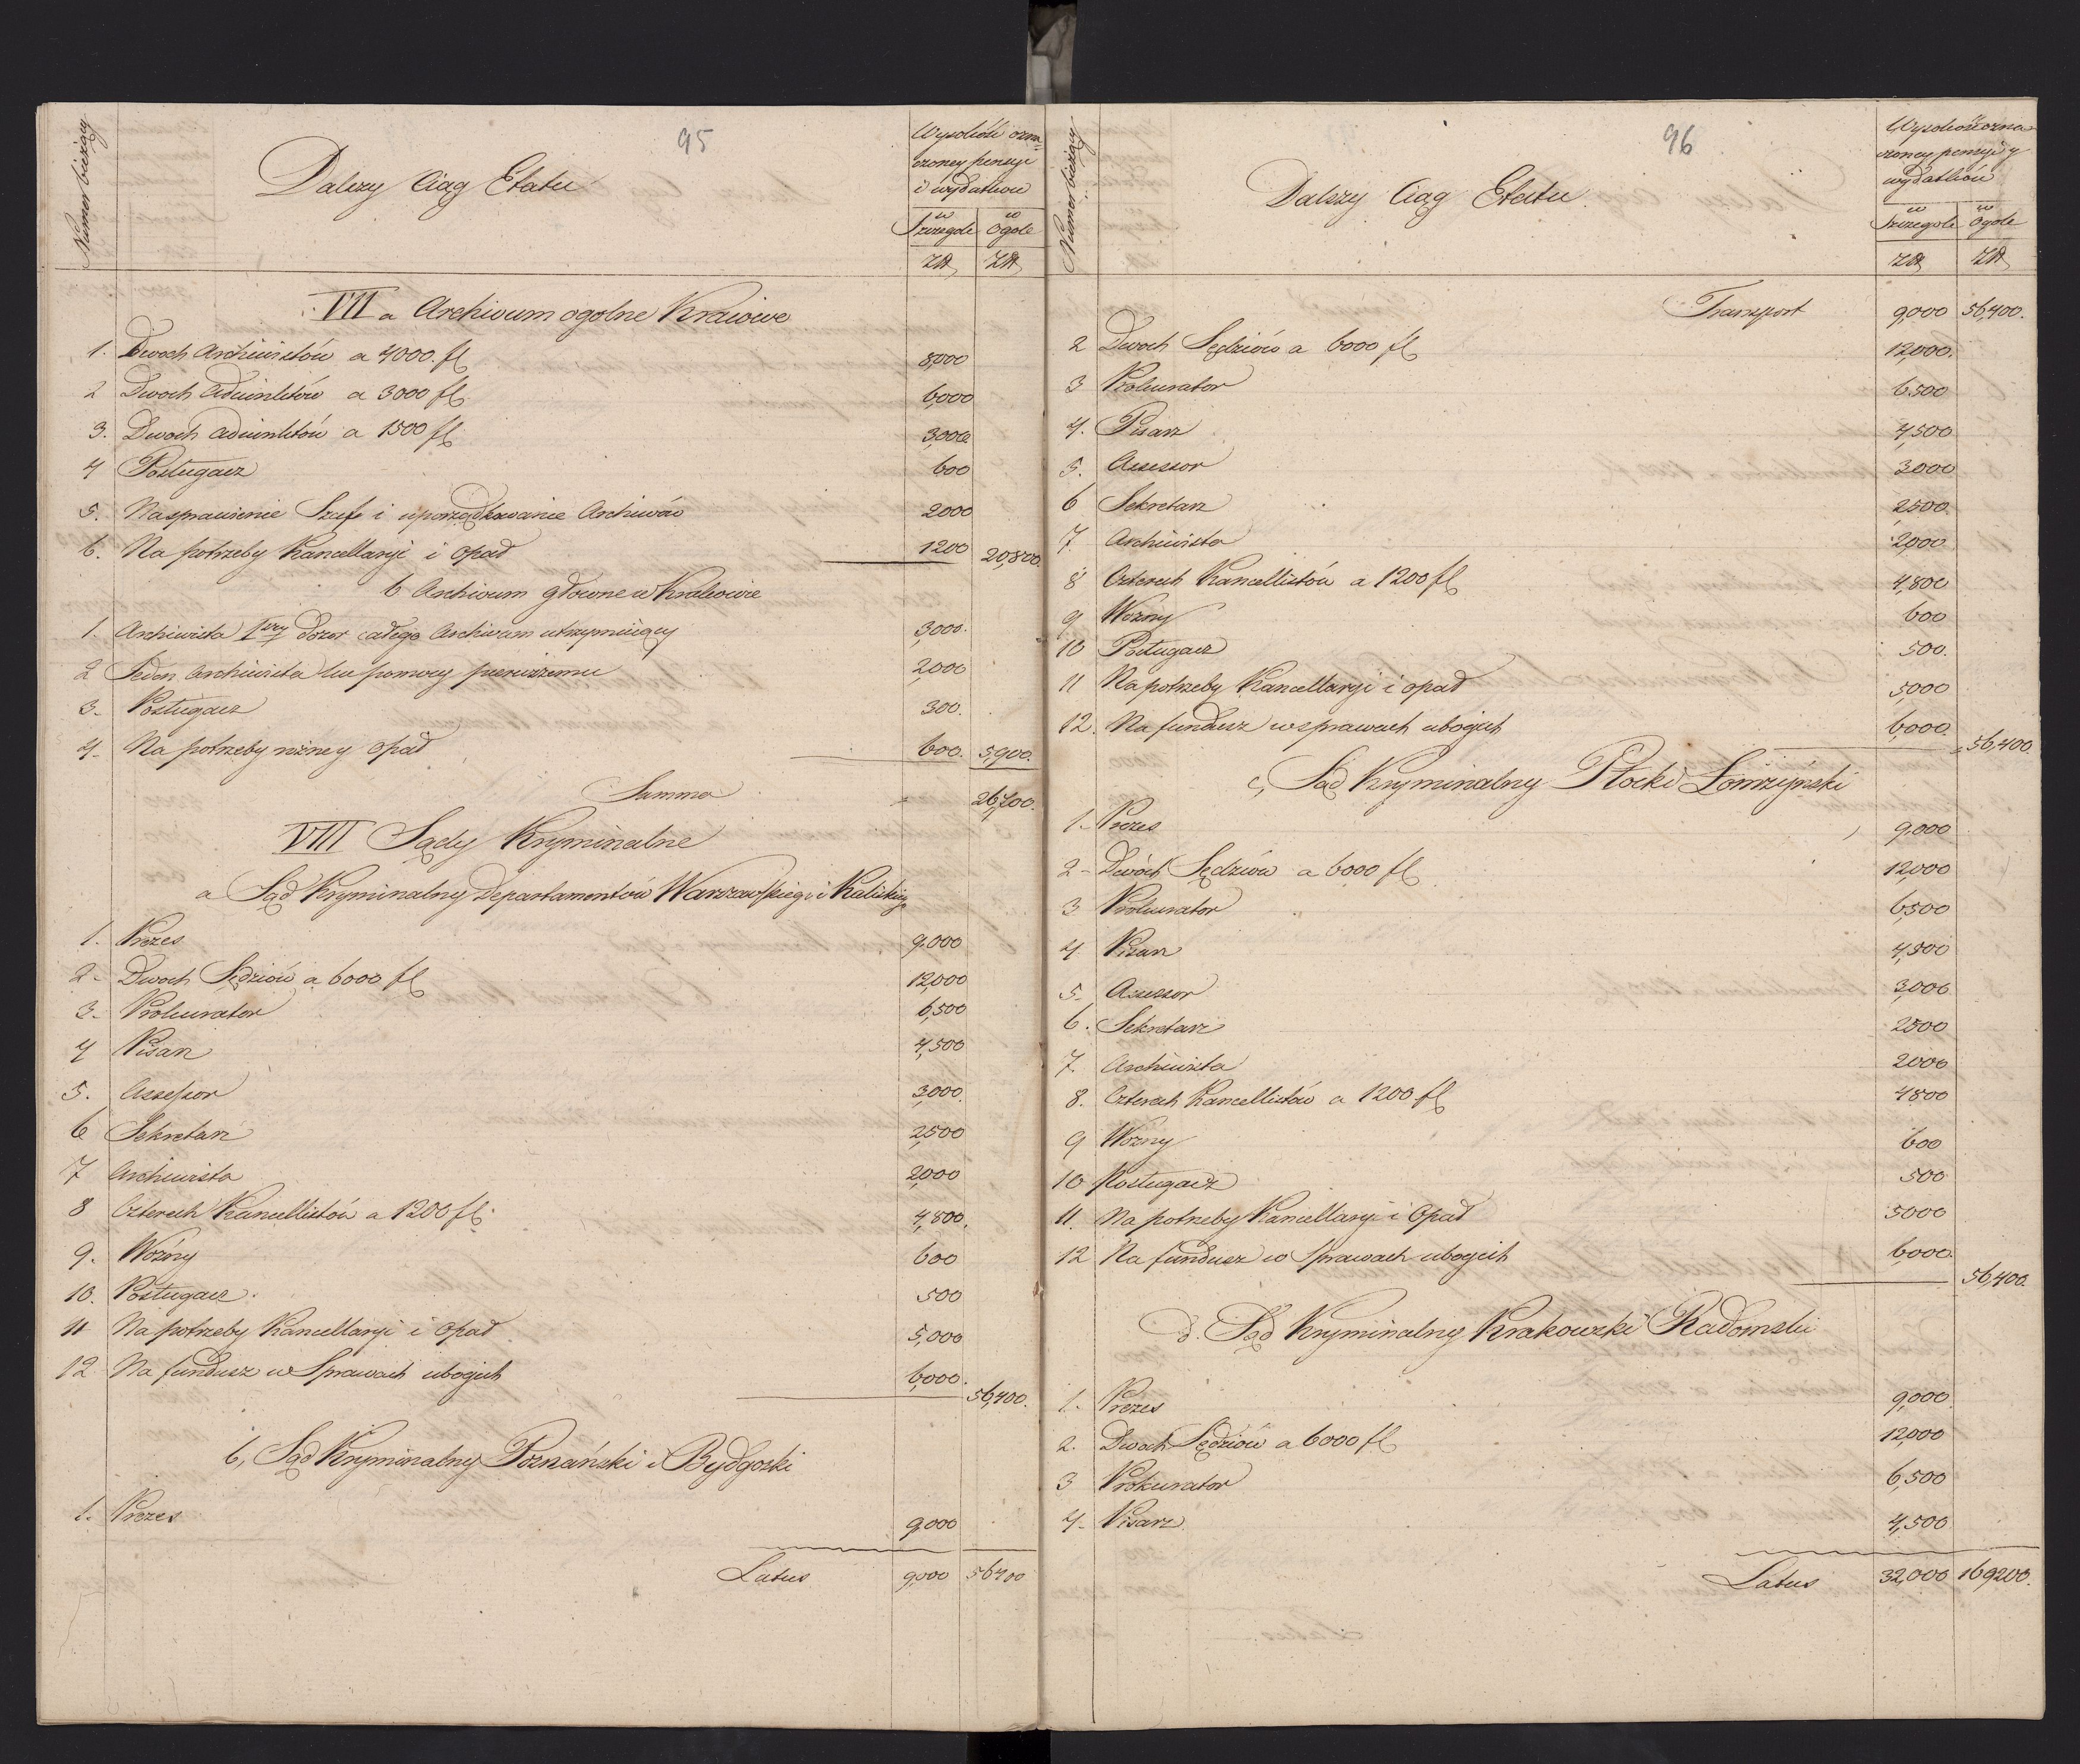 95
Numer bieżący
Dalszy Ciąg Etatu
Wysokość ozna=
czoney pensyi
i wydatków
w Szczegole
w Ogole
Zł
Zł
VII a Archivum ogolne Kraiowe
1. Dwoch Archiwistów a 4000 fl 8,000
2 Dwoch Adiunktów a 3000 fl 6,000
3. Dwoch adiunktów a 1500 fl 3,000
4 Posługacz 600
5. Na sprawienie Szaf i uporządkowanie Archiwów 2000
6. Na potrzeby Kancellaryi i opał 1200 20,800.
b Archivum główne w Krakowie
1. Archiwista 1wszy dozor całego Archivum utrzymuiący 3,000.
2 Jeden Archiwista ku pomocy pierwszemu 2,000
3- Posługacz 300.
4- Na potrzeby rożne y opał 600. 5,900.
Summa 26,700.
VIII Sądy Kryminalne
a Sąd Kryminalny Departamentów Warszawskiego i Kaliskiego
1. Prezes 9,000
2- Dwoch Sędziów a 6000 fl 12,000
3- Prokurator 6,500
4 Pisarz 4,500
5. Assessor 3,000.
6 Sekretarz 2,500
7 Archiwista 2,000
8 Czterech Kancellistów a 1200 fl. 4,800.
9. Wozny 600
10. Posługacz. 500
11 Na potrzeby Kancellaryi i opał 5,000
12 Na fundusz w Sprawach ubogich 6,000. 56,400.
b, Sąd Kryminalny Poznański i Bydgoski
1. Prezes 9,000
Latus 9,000 56400
96
Numer bieżący
Dalszy Ciąg Etatu.
Wysokość ozna
czoney pensyi y
wydatków
w Szczegole
w Ogole
Zł
Zł
Transport 9,000 56,400.
2 Dwoch Sędziów a 6000 fl 12,000.
3 Prokurator 6,500
4. Pisarz 4,500
5. Assessor 3000
6 Sekretarz 2,500.
7. Archiwista 2,000
8 Czterech Kancellistów a 1200 fl 4,800
9 Wozny 600
10 Posługacz 500.
11 Na potrzeby Kancellaryi i opał 5,000
12. Na fundusz w sprawach ubogich 6,000. 56,400.
c, Sąd Kryminalny Płocki Łomżyński
1- Prezes 9,000
2- Dwóch Sędziów a 6000 fl 12,000
3 Prokurator 6,500
4 Pisarz 4,500
5- Assessor 3,000
6. Sekretarz 2500
7. Archiwista 2000
8. Czterech Kancellistów a 1200 fl 4800
9 Wozny 600
10 Posługacz 500
11. Na potrzeby Kancellaryi i Opał 5000
12 Na fundusz w Sprawach ubogich 6,000. 56,400.
d. Sąd Kryminalny Krakowski Radomski
1- Prezes 9,000.
2. Dwoch Sędziów a 6000 fl 12,000
3 Prokurator 6,500
4- Pisarz 4,500
Latus 32,000 169200.